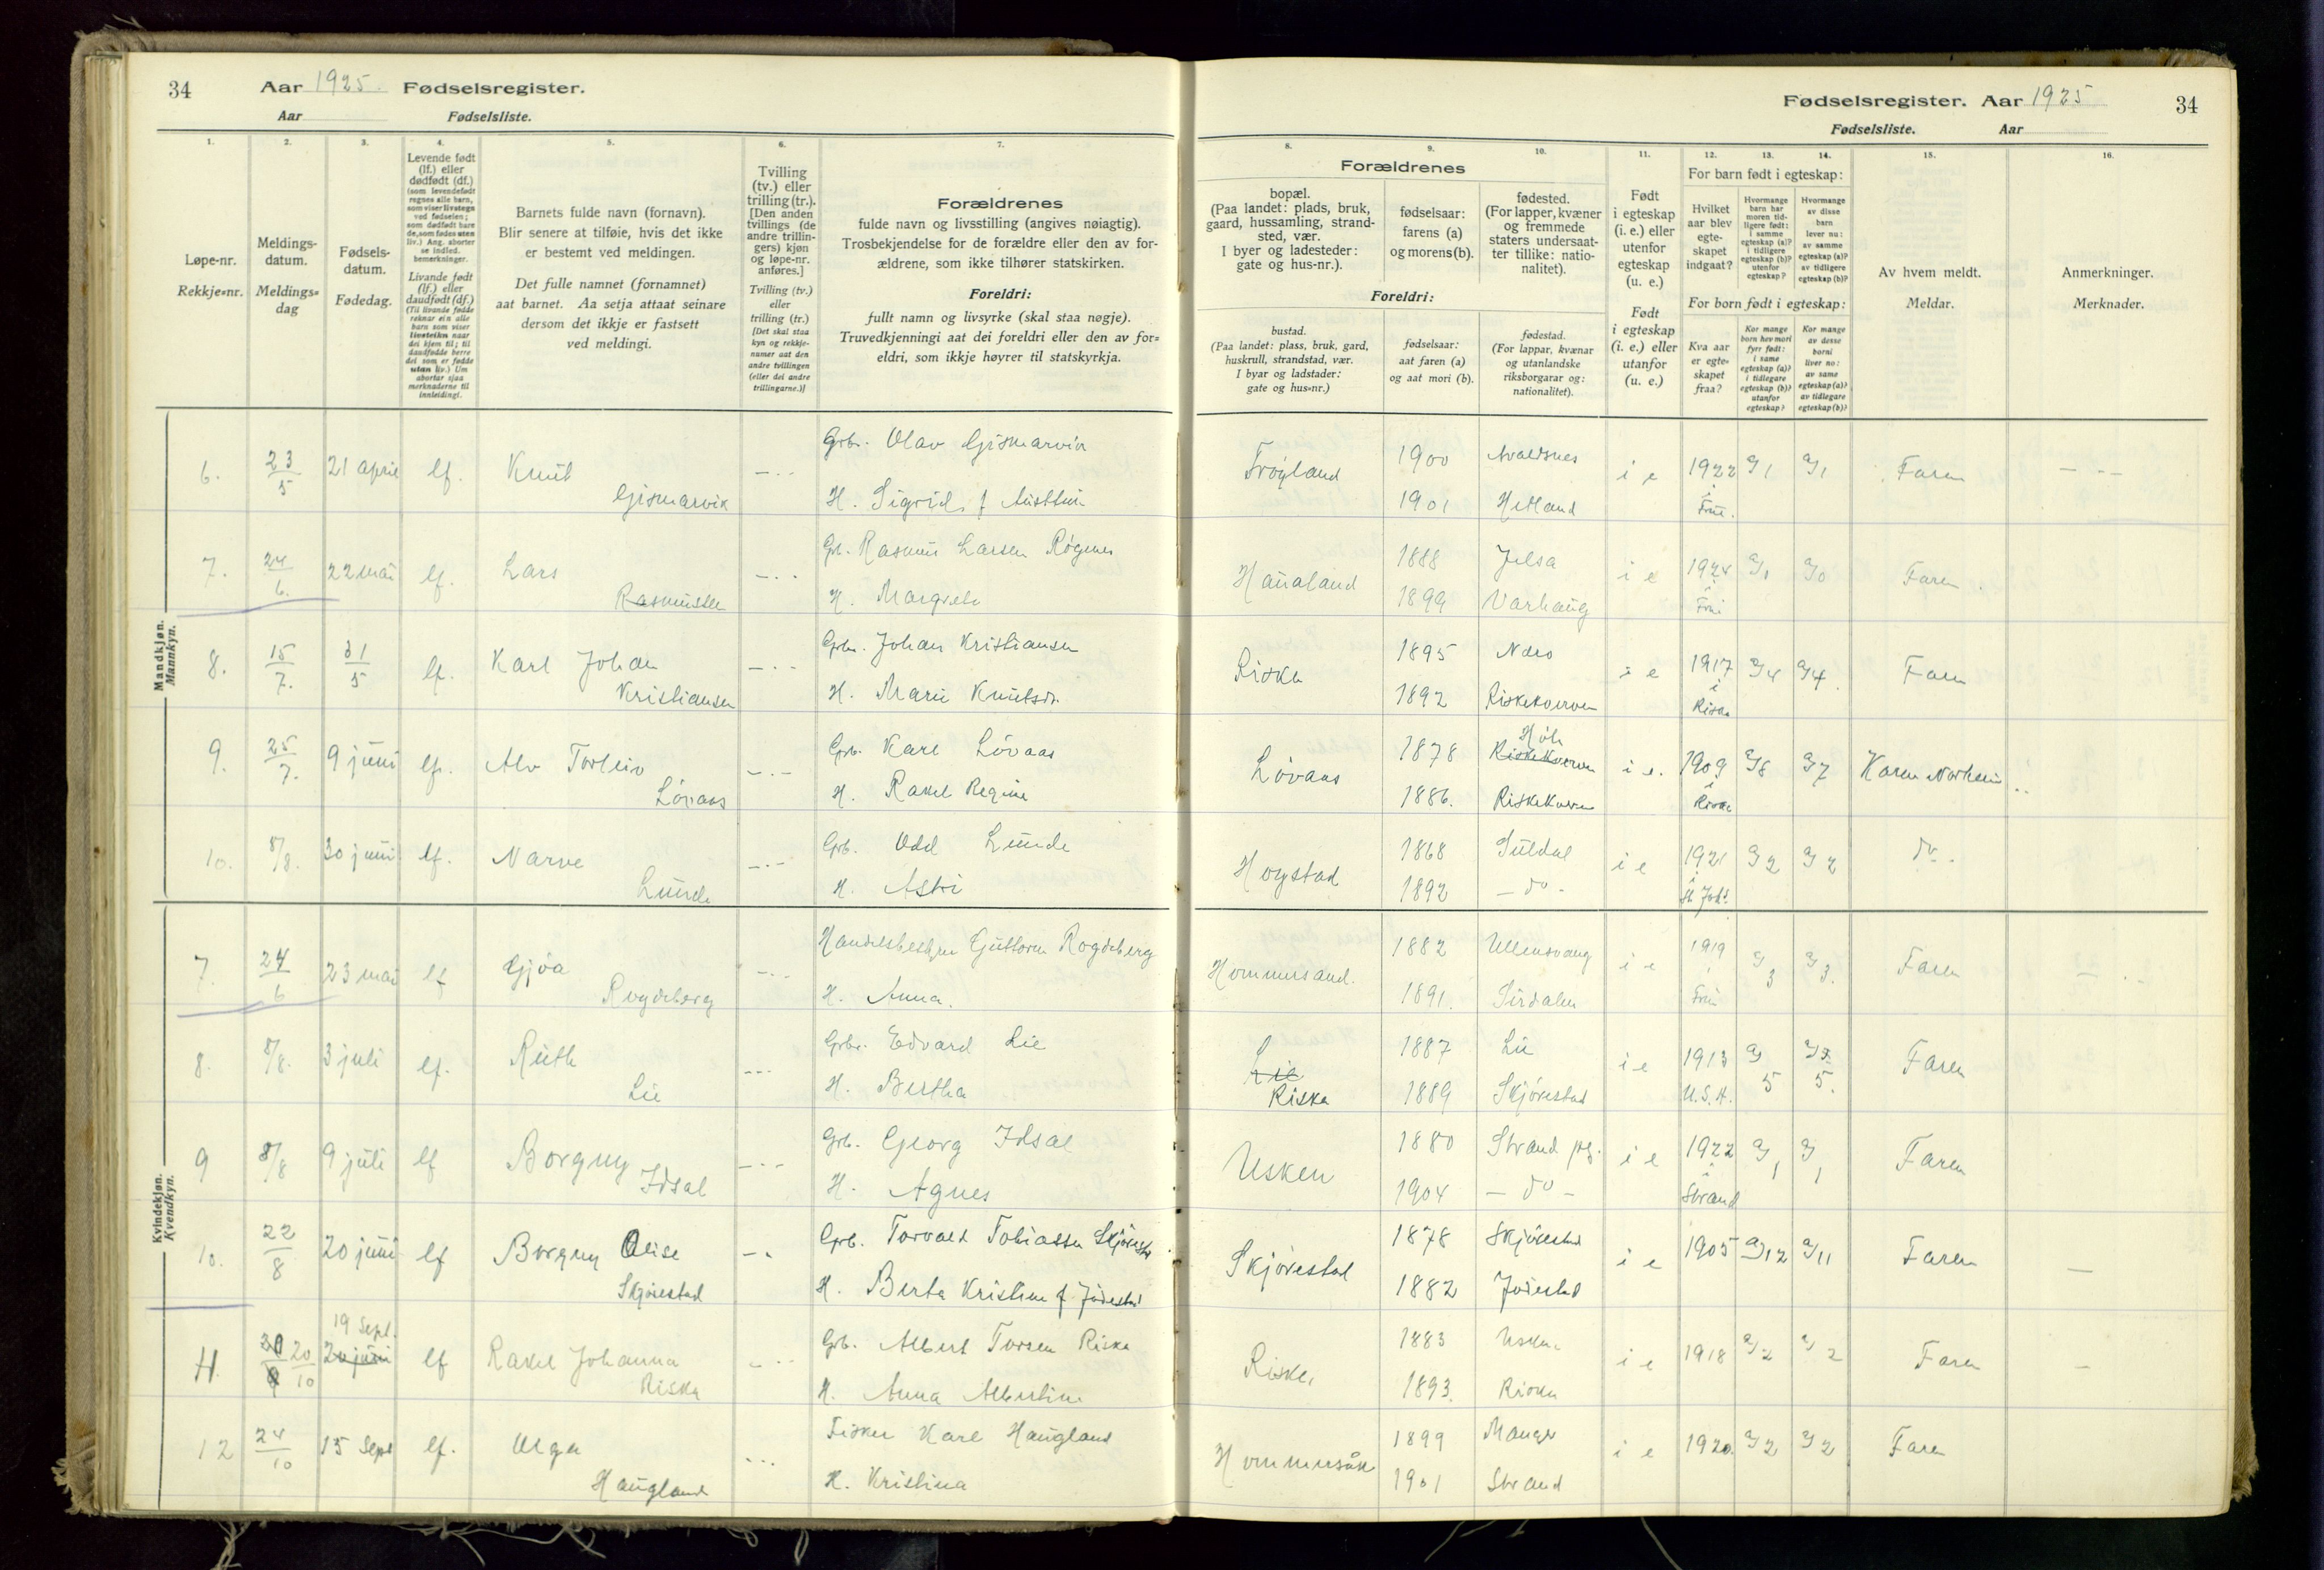 34
Aar 1925. Fødselsregister.
Aar Fødselsliste.
Fødselsregister. Aar 1925
34
Fødselsliste. Aar
1. 2. 3. 4. 5. 6. 7.
8. 9. 10. 11. 12. 13. 14. 15. 16.
Løpe-nr.
Rekkje-nr.
Meldings-
datum.
Meldings-
dag
Fødsels-
datum.
Fødedag.
Levende født
(lf.) eller
dødfødt (df.)
(som levendefødt
regnes alle barn,
som viser livstegn
ved fødselen;
som dødfødt bare
de, som fødes uten
liv.) Ang. aborter
se indled.
bemerkninger.
Livande født
(lf.) eller
daudfødt (df.)
(Til livande fødde
reknar ein alle
barn som viser
livsteikn naar
dei kjem til; til
daudfødde berre
dei som er fødde
utan liv.) Um
abortar sjaa
merknaderne til
innleidingi.
Barnets fulde navn (fornavn).
Blir senere at tilføie, hvis det ikke
er bestemt ved meldingen.
Det fulle namnet (fornamnet)
aat barnet. Aa setja attaat seinare
dersom det ikkje er fastsett
ved meldingi.
Tvilling
(tv.) eller
trilling (tr.).
[Den anden
tvillings (de
andre trillin-
gers) kjøn
og løpe-nr.
anføres.]
Tvilling (tv.)
eller
trilling (tr.)
[Det skal staa
kyn og rekkje-
numer aat den
andre tvillingen
(eller dei andre
trillingarne.)]
Forældrenes
fulde navn og livsstilling (angives nøiagtig).
Trosbekjendelse for de forældre eller den av for-
ældrene, som ikke tilhører statskirken.
Foreldri:
fullt namn og livsyrke (skal staa nøgje).
Truvedkjenningi aat dei foreldri eller den av for-
eldri, som ikkje høyrer til statskyrkja.
Forældrenes
bopæl.
(Paa landet: plads, bruk,
gaard, hussamling, strand-
sted, vær.
I byer og ladesteder:
gate og hus-nr.).
fødselsaar:
farens (a)
og morens (b).
fødested.
(For lapper, kvæner
og fremmede
staters undersaat-
ter tillike: natio-
nalitet).
Foreldri:
bustad.
(Paa landet: plass, bruk, gard,
huskrull, strandstad, vær.
I byar og ladstader:
gate og hus-nr.)
fødselsaar:
aat faren (a)
og aat mori (b).
fødestad.
(For lappar, kvænar
og utanlandske
riksborgarar og:
nationalitet).
Født
i egteskap
(i. e.) eller
utenfor
egteskap
(u. e.)
Født
i egteskap
(i. e.) eller
utanfor
(u. e.)
For barn født i egteskap:
Hvilket
aar blev
egte-
skapet
indgaat?
Hvormange
barn har
moren tid-
ligere født:
i samme
egteskap (a)?
i tidligere
egteskap (b)?
utenfor
egteskap?
Hvormange
av disse
barn
lever nu:
av samme
egteskap (a)?
av tidligere
egteskap (b)?
For born født i egteskap:
Kva aar
er egte-
skapet
fraa?
Kor mange
born hev mori
fyrr født:
i same
egteskap (a)?
i tidlegare
egteskap (b)?
utanfor
egteskap?
Kor mange
av desse
borni
liver no:
av same
egteskap (a)?
av tidlegare
egteskap (b)?
Av hvem meldt.
Meldar.
Anmerkninger.
Merknader.
Mandkjøn.
Mannkyn.
6. 23/5 21 april lf. Knut Gismarvik
Grb. Olav Gismarvik
H. Sigrid f.
Frøyland 1900 Avaldsnes i e 1922 a/1 a/1 Faren
1901 Hetland
7. 24/6. 22 mai lf. Lars Rasmussen
Gb. Rasmus Larsen Røgenes
H. Margrete
Haualand 1888 Jelsa i e 1924 a/0 a/0 Faren
1899 Varhaug
8. 15/7. 31/5 lf. Karl Johan Kristiansen
Grb. Johan Kristiansen
H. Marie Knutsdr.
Riska 1895 Nærø i e 1917 a/4 a/4 Faren
1892 Riskekvernen i Riska
9. 25/7. 9 juni lf. Alv Torleiv Lövaas
Grb. Karl Lövaas
H. Rakel Regine
Lövaas 1878 Høle i e. 1909 a/8 a/7 Karen Norheim
1886. Riskekvernen i Riska
10. 8/8. 30 juni lf. Narve Lunde
Grb. Odd Lunde
H. Astri
Hogstad 1868 Suldal i e 1921 a/2 a/2 do.
1892 - do -
Kvindekjøn.
Kvendkyn.
7. 24/6 23 mai lf Gjøa Rogdeberg
Handelsbestyrer Guttorm Rogdeberg
H. Anna.
Hommersand. 1882 Ullensvang i e 1919 a/3 a/3. Faren
1891. Sirdalen
8. 8/8. 3 juli lf. Ruth Lie
Grb. Edvard Lie
H. Bertha
Lie Riska 1887 Lie i e 1913 a/5 a/5. Faren
1889 Skjörestad U.S.A.
9 8/8 9 juli lf Borgny Idsal
Grb. Georg Idsal
H. Agnes
Usken 1880 Strand pg. i e 1922 a/1 a/1 Faren
1904 - do - i Strand
10. 22/8 20 juni lf Borgny Olise Skjørestad
Grb. Torvald Tobiassen Skjørestad
H. Berta Kristine f. Jødestad
Skjørestad 1878 Skjørestad i e 1905 a/12 a/11 Faren
1882 Jødestad
11. 20/10 19 Sept. 20 juni lf Rakel Johanna Riska
Grb. Albert Torsen Riska
H. Anna Albertine
Riska 1883 Usken i e 1918 a/2 a/2 Faren
1893. Riska
12 24/10 15 Sept lf. Olga Haugland
Fisker Karl Haugland
H. Kristina
Hommersåk 1899 Manger i e 1920. a/2 a/2 Faren
1901 Strand